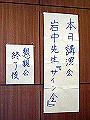 本日講演会
岩中先生『サイン会』
懇親会
終了後